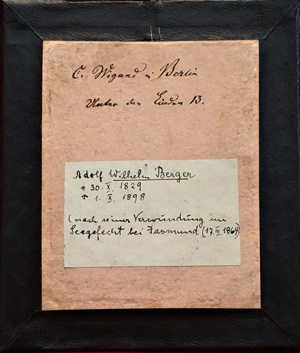 C. Wigand in Berlin
Unter den Linden 13.
Adolf Wilhelm Berger
* 30. X. 1829
+ 1. X. 1898
(nach seiner Verwundung im
Seegefecht bei Jasmund (17.III 1864)